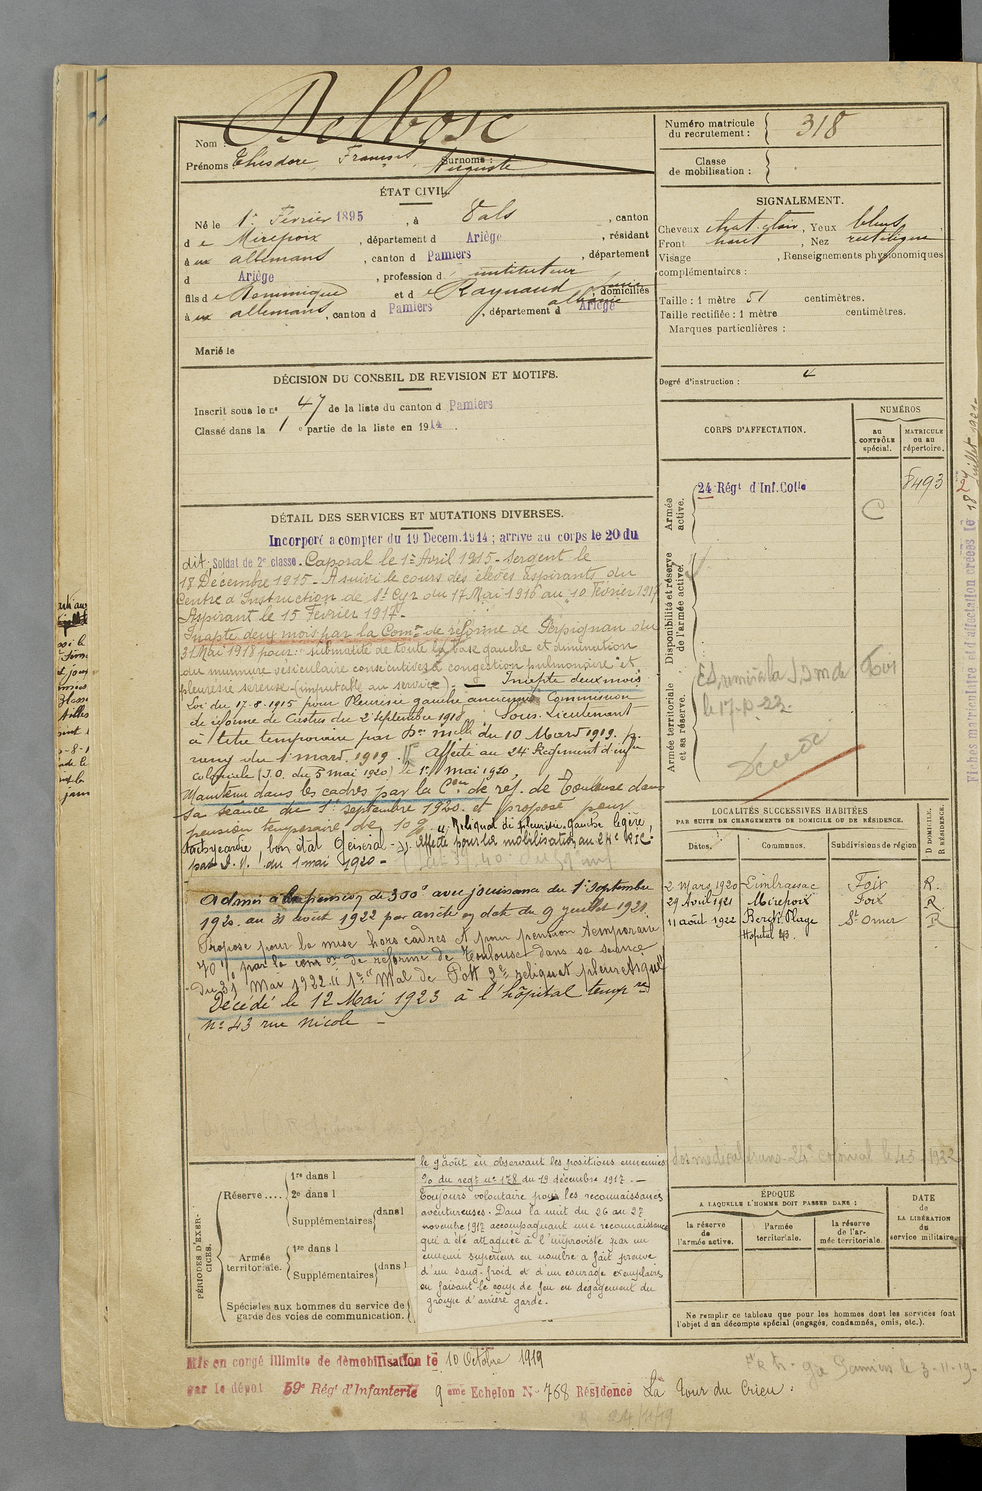 Nom Delbosc
Numéro matricule du recrutement : 318
Prénoms Théodore François Auguste Surnoms :
Classe de mobilisation :
ÉTAT CIVIL.
Né le 1er Février 1895, à Vals, canton
de Mirepoix, département d Ariège, résidant
à ux allemans, canton d Pamiers, département
d Ariège, profession d instituteur
fils de Dominique et de Raynaud albanie domiciliés
à ux allemans, canton d Pamiers, département d Ariège
Marié le
SIGNALEMENT.
Cheveux chat. clair, Yeux bleus
Front haut, Nez rectiligne
Visage , Renseignements physionomiques
complémentaires :
Taille : 1 mètre 51 centimètres.
Taille rectifiée : 1 mètre centimètres.
Marques particulières :
Degré d'instruction : 4
DÉCISION DU CONSEIL DE REVISION ET MOTIFS.
Inscrit sous le n° 47 de la liste du canton d Pamiers
Classé dans la 1e partie de la liste en 1914.
DÉTAIL DES SERVICES ET MUTATIONS DIVERSES.
Incorporé a compter du 19 Decem. 1914 ; arrivé au corps le 20 du
dit. Soldat de 2e classe. Caporal le 1er Avril 1915. Sergent le
18 Décembre 1915. A suivi le cours des élèves Aspirants du
Centre d'Instruction de St Cyr du 17 Mai 1916 au 10 Février 1917
Aspirant le 15 Février 1917.
Inapte deux mois par la Comon de réforme de Perpignan du
31 Mai 1918 pour : submatité de toute la base gauche et diminution
du murmure vésiculaire consécutives à congestion pulmonaire et
pleurésie sereuse (imputable au service). — Inapte deux mois
Loi du 17-8-1915 pour Pleuresie gauche ancienne Commission
de réforme de Castres du 2 septembre 1918. Sous-Lieutenant
à titre temporaire par Don melle du 10 Mars 1919. pr.
rang du 1 mars 1919. Affecté au 24e Régiment d'infie
coloniale (J.O. du 5 mai 1920) le 1er mai 1920.
Maintenu dans les cadres par la Con de réf. de Toulouse dans
sa séance du 1er septembre 1920. et proposé pour
pension temporaire de 10 % Reliquat de pleurésie gauche légère,
tachycardie, bon état Général. affecté pour la mobilisation au 24e RIC.
par J.O. du 1 mai 1920 -
Admis à la pension de 300f avec jouissance du 1er Septembre
1920 au 31 août 1922 par arrêté en date du 9 juillet 1921.
Proposé pour la mise hors cadres et pour pension temporaire
70 % par la comon de réforme de Toulouse dans sa séance
du 31 Mar 1922 1er Mal de Pott 2e reliquat pleurésique
Décédé le 12 Mai 1923 à l'hôpital tempre
N° 43 rue Nicole -
CORPS D'AFFECTATION.
NUMÉROS
au CONTRÔLE spécial.
MATRICULE ou au répertoire.
Armée active.
24 Régt d'Inf. Colle
8493
C
Disponibilité et réserve de l'armée active.
Armée territoriale et sa réserve.
le 17-12-23
Décédé
Fiches matriculaire et d'affectation créées le 18 Juillet 1921
LOCALITÉS SUCCESSIVES HABITÉES
PAR SUITE DE CHANGEMENTS DE DOMICILE OU DE RÉSIDENCE.
Dates. Communes. Subdivisions de région D DOMICILE. R RÉSIDENCE.
2 Mars 1920 Limbrassac Foix R.
29 Avril 1921 Mirepoix Foix R.
11 août 1922 Berck Plage St Omer R
Hôpital 43.
ÉPOQUE
A LAQUELLE L'HOMME DOIT PASSER DANS :
la réserve de l'armée active.
l'armée territoriale.
la réserve de l'armée territoriale.
DATE de LA LIBÉRATION du service militaire.
Ne remplir ce tableau que pour les hommes dont les services font
l'objet d'un décompte spécial (engagés, condamnés, omis, etc.).
PÉRIODES D'EXERCICES.
Réserve ..... 1re dans l
2e dans l
Supplémentaires dans l
Armée territoriale. 1re dans l
Supplémentaires dans l
Spéciales aux hommes du service de
garde des voies de communication.
le 9 août en observant les positions ennemies
Jo du regt n° 178 du 19 décembre 1917. —
Toujours volontaire pour les reconnaissances
aventureuses. Dans la nuit du 26 au 27
novembre 1917 accompagnant une reconnaissance
qui a été attaquée à l'improviste par un
ennemi supérieur en nombre a fait preuve
d'un sang-froid et d'un courage exemplaires
en faisant le coup de feu en dégagement du
groupe d'arrière garde.
Mis en congé illimité de démobilisation le 10 Octobre 1919
par le dépôt 59e Régt d'Infanterie 9 eme Echelon N° 768 Résidence La Tour du Crieu.